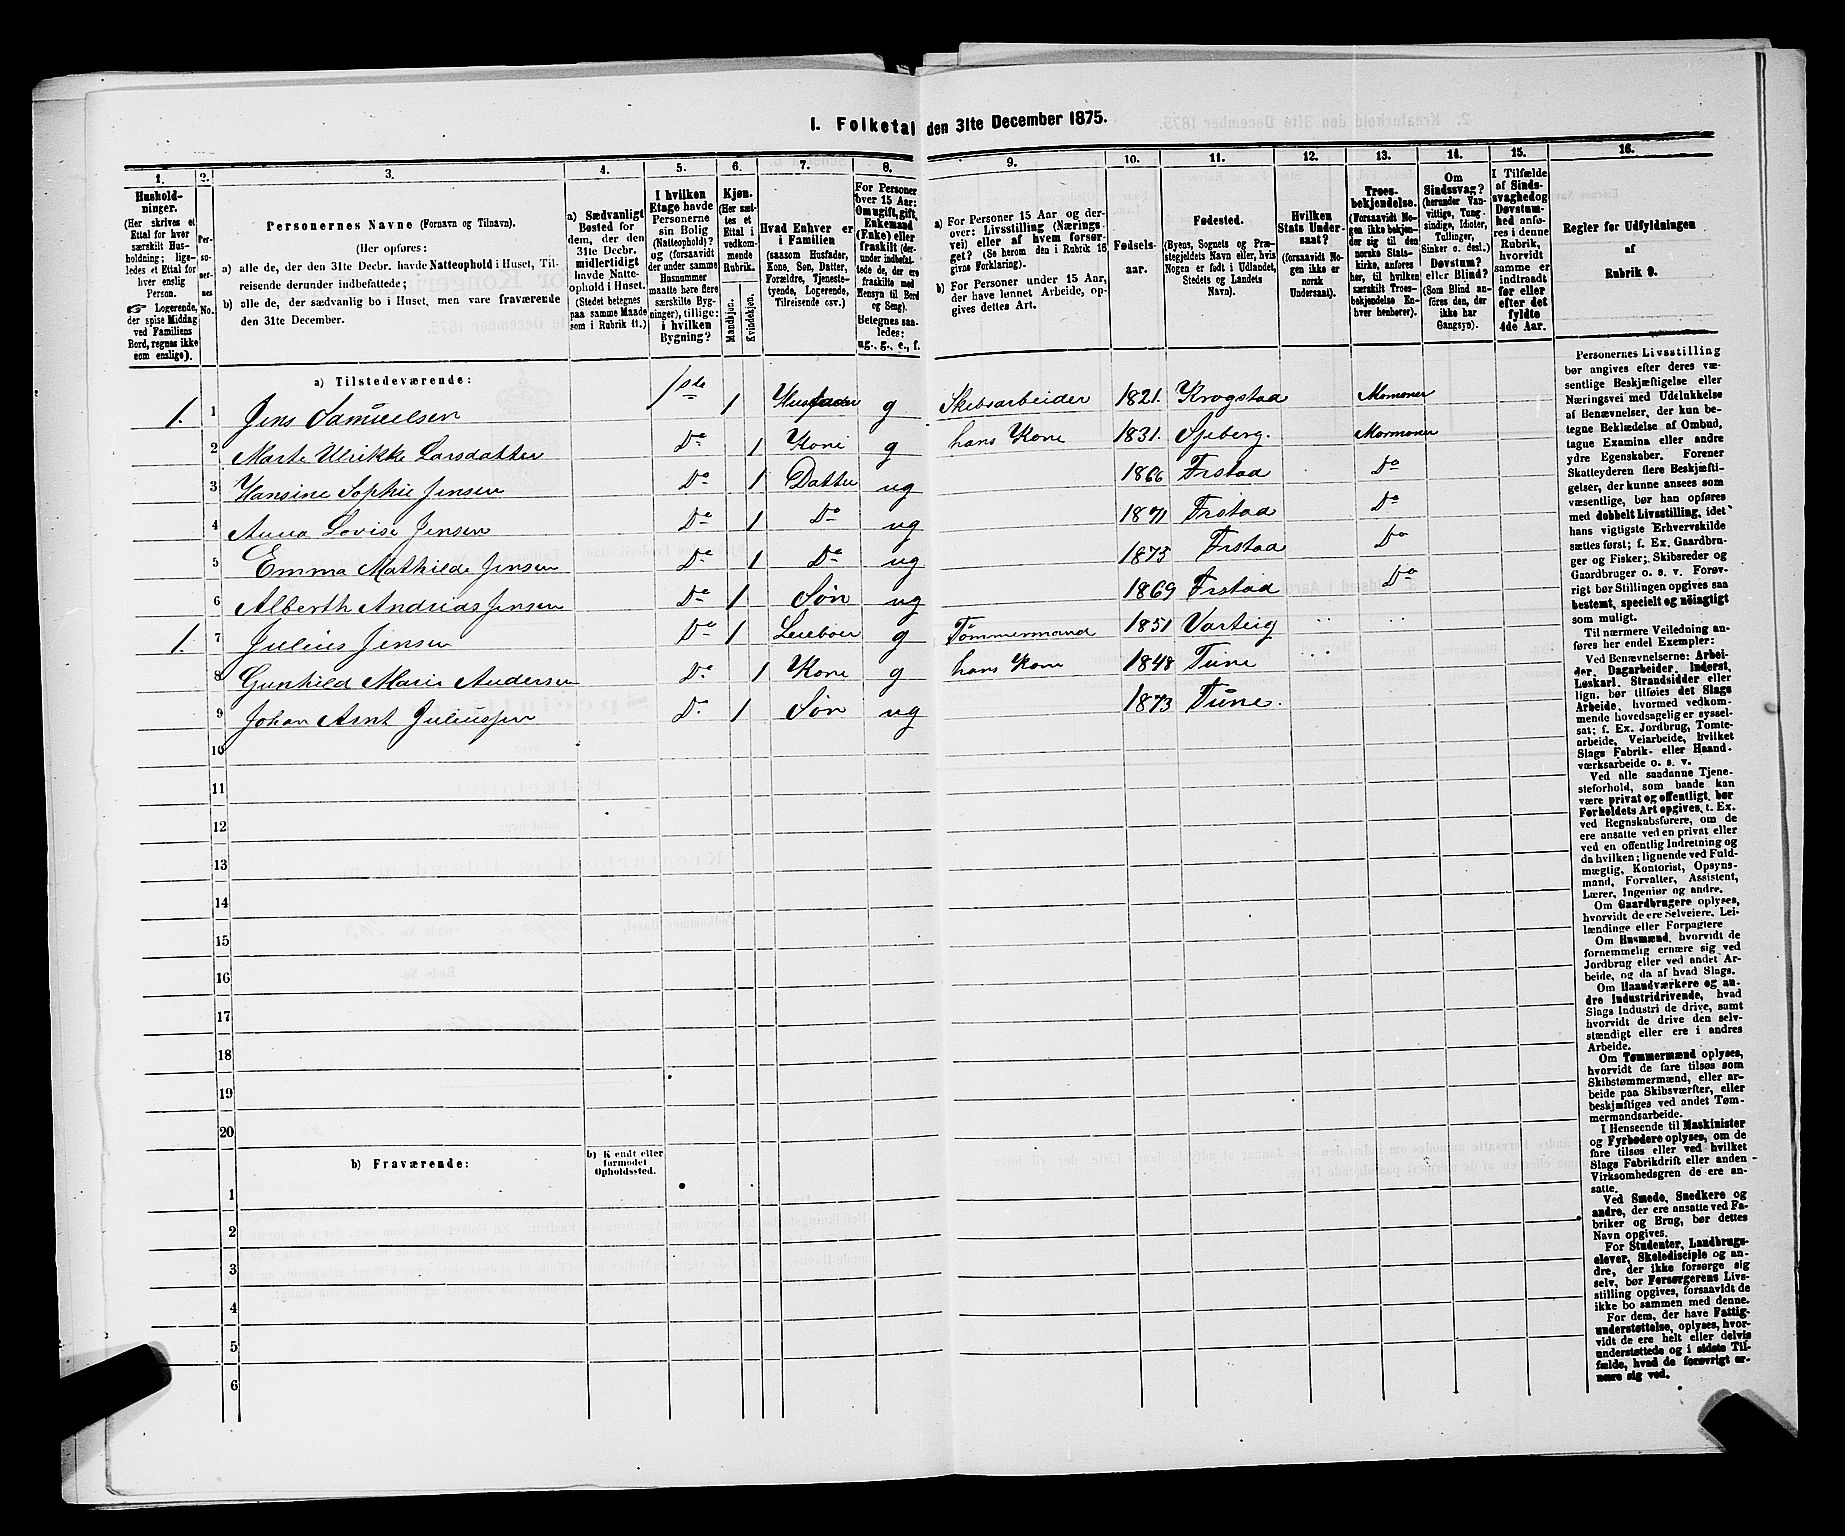 I. Folketal den 31te December 1875.
1.
2.
3.
4.
5.
6.
7.
8.
9.
10.
11.
12.
13.
14.
15.
16.
Hushold-
ninger.
(Her skrives et
Ettal for hver
særskilt Hus-
holdning; lige-
ledes et Ettal for
hver enslig
Person.
☞ Logerende,
der spise Middag
ved Familiens
Bord, regnes ikke
som enslige).
Per-
soner-
nes
No.
Personernes Navne (Fornavn og Tilnavn).
(Her opføres:
a) alle de, der den 31te Decbr. havde Natteophold i Huset, Til-
reisende derunder indbefattede;
b) alle de, der sædvanlig bo i Huset, men vare fraværende
den 31te December.
a) Sædvanligt
Bosted for
dem, der den
31te Decbr.
midlertidigt
havde Natte-
ophold i Huset.
(Stedet betegnes
paa samme Maade
som i Rubrik 11.)
I hvilken
Etage havde
Personerne
sin Bolig
(Natteophold)?
og (forsaavidt
der under samme
Husnummer
maatte høre flere
særskilte Byg-
ninger), tillige:
i hvilken
Bygning?
Kjøn.
(Her sæt-
tes et
Ettal i
vedkom-
mende
Rubrik.
Mandkjøn.
Kvindekjøn.
Hvad Enhver er
i Familien
(saasom Husfader,
Kone, Søn, Datter,
Forældre, Tjeneste-
tyende, Logerende,
Tilreisende osv.)
For Personer
over 15 Aar:
Om ugift, gift,
Enkemand
(Enke) eller
fraskilt (der-
under indbefat-
tede de, der ere
fraskilte med
Hensyn til Bord
og Seng).
Betegnes saa-
ledes:
ug., g., e., f.
a) For Personer 15 Aar og der-
over: Livsstilling (Nærings-
vei) eller af hvem forsør-
get? (Se herom den i Rubrik 16
givne Forklaring).
b) For Personer under 15 Aar,
der have lønnet Arbeide, op-
gives dettes Art.
Fødsels-
aar.
Fødested.
(Byens, Sognets og Præ-
stegjeldets Navn eller, hvis
Nogen er født i Udlandet,
Stedets og Landets
Navn).
Hvilken
Stats Under-
saat?
(Forsaavidt No-
gen ikke er
norsk
Undersaat).
Troes-
bekjendelse.
(Forsaavidt No-
gen ikke bekjen-
der sig til den
norske Stats-
kirke, anføres
her, til hvilken
særskilt Troes-
bekjendelse En-
hver henhører).
Om
Sindssvag?
(herunder Van-
vittige, Tung-
sindige, Idioter,
Tullinger,
Sinker o. desl.)
Døvstum?
eller Blind?
(Som Blind an-
føres den, der
ikke har
Gangsyn).
I Tilfælde
af Sinds-
svaghed og
Døvstum-
hed anfø-
res i denne
Rubrik,
hvorvidt
samme er
indtraadt
før eller
efter det
fyldte
4de Aar.
Regler for Udfyldningen
af
Rubrik 9.
a) Tilstedeværende:
1. 1 Jens Samuelsen 1ste 1 Husfader g Skibsarbeider 1821. Krogstad Mormoner
2 Marte Ulrikke Larsdatter Do 1 Kone g hans Kone 1831. Speberg. Mormoner
3 Hansine Sophie Jensen Do 1 Datter ug 1866 Frstad Do
4 Anna Lovise Jensen Do 1 Do ug 1871 Frstad Do
5 Emma Mathilde Jensen Do 1 Do ug 1873 Frstad Do
6 Alberth Andreas Jensen Do 1 Søn ug 1869 Frstad Do
1. 7 Julius Jensen Do 1 Leieboer g Tömmermand 1851 Varteig
8 Gunhild Marie Andersen Do 1 Kone g hans Kone 1848 Tune
9 Johan Arnt Juliussen Do 1 Søn ug 1873 Tune.
10
11
12
13
14
15
16
17
18
19
20
b) Fraværende:
b) Kjendt eller
formodet
Opholdssted.
1
2
3
4
5
6
Personernes Livsstilling
bør angives efter deres væ-
sentlige Beskjæftigelse eller
Næringsvei med Udelukkelse
af Benævnelser, der kun be-
tegne Beklædelse af Ombud,
tagne Examina eller andre
ydre Egenskaber. Forener
Skatteyderen flere Beskjæfti-
gelser, der kunne ansees som
væsentlige, bør han opføres
med dobbelt Livsstilling, idet
hans vigtigste Erhvervskilde
sættes først; f. Ex. Gaardbru-
ger og Fisker; Skibsreder og
Gaardbruger o. s. v. Forøv-
rigt bør Stillingen opgives saa
bestemt, specielt og nöiagtigt
som muligt.
Til nærmere Veiledning an-
føres her endel Exempler:
Ved Benævnelserne: Arbei-
der, Dagarbeider, Inderst,
Løskarl, Strandsidder eller
lign. bør tilføies det Slags
Arbeide, hvormed vedkom-
mende hovedsagelig er syssel-
sat; f. Ex. Jordbrug, Tomte-
arbeide, Veiarbeide, hvilket
Slags Fabrik- eller Haand-
værksarbeide o. s. v.
Ved alle saadanne Tjene-
steforhold, som baade kan
være privat og offentligt, bør
Forholdets Art opgives, t. Ex.
ved Regnskabsførere, om de
ere ansatte ved en privat eller
ved en offentlig Indretning og
da hvilken; lignende ved Fuld-
mægtig, Kontorist, Opsyns-
mand, Forvalter, Assistent,
Lærer, Ingeniør og andre.
Om Gaardbrugere oplyses,
hvorvidt de ere Selveiere, Lei-
lændinge eller Forpagtere
Om Husmænd, hvorvidt de
fornemmelig ernære sig ved
Jordbrug eller ved andet Ar-
beide, og da af hvad Slags.
Om Haandværkere og an-
dre Industridrivende, hvad
Slags Industri de drive, samt
hvorvidt de drive den selv-
stændigt eller ere i andres
Arbeide.
Om Tømmermænd oplyses,
hvorvidt de fare tilsøs som
Skibstømmermænd, eller ar-
beide paa Skibsværfter, eller
beskjæftiges ved andet Tøm-
mermandsarbeide.
I Henseende til Maskinister
og Fyrbødere oplyses, om de
fare tilsøs eller ved hvilket
Slags Fabrikdrift eller anden
Virksomhedsgren de ere an-
satte.
Ved Smede, Snedkere og
andre, der ere ansatte ved Fa-
briker og Brug, bør dettes
Navn opgives.
For Studenter, Landbrugs-
elever, Skoledisciple og an-
dre, der ikke forsørge sig
selv, bør Forsørgerens Livs-
stilling opgives, forsaavidt de
ikke bo sammen med denne.
For dem, der have Fattig-
understøttelse, oplyses, hvor-
vidt de ere helt eller delvis
understøttede og i sidste Til-
fælde, hvad de forøvrigt er-
nære sig ved.